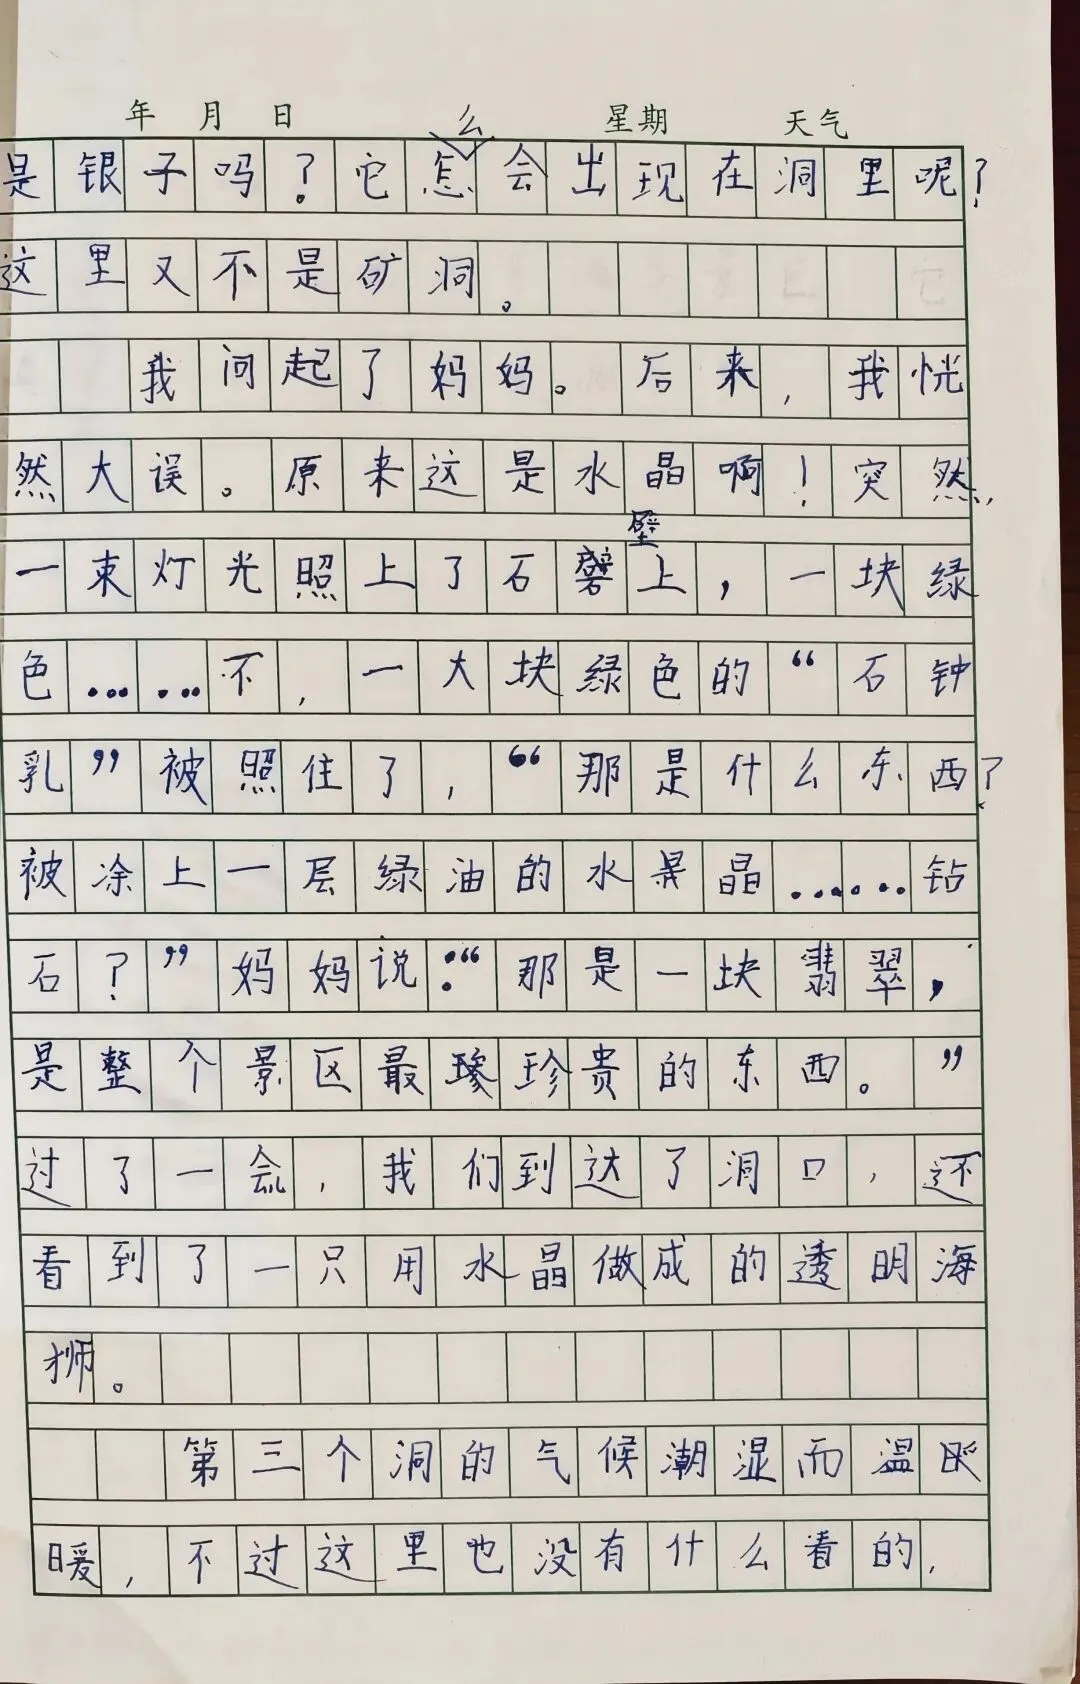 年 月 日 星期 天气
是银子吗?它怎么会出现在洞里呢?
这里又不是矿洞。
我问起了妈妈。后来,我恍
然大误。原来这是水晶啊!突然,
一束灯光照上了石壁上,一块绿
色……不,一大块绿色的“石钟
乳”被照住了,“那是什么东西?
被涂上一层绿油的水晶……钻
石?”妈妈说:“那是一块翡翠,
是整个景区最珍贵的东西。”
过了一会,我们到达了洞口,还
看到了一只用水晶做成的透明海
狮。
第三个洞的气候潮湿而温
暖,不过这里也没有什么看的,